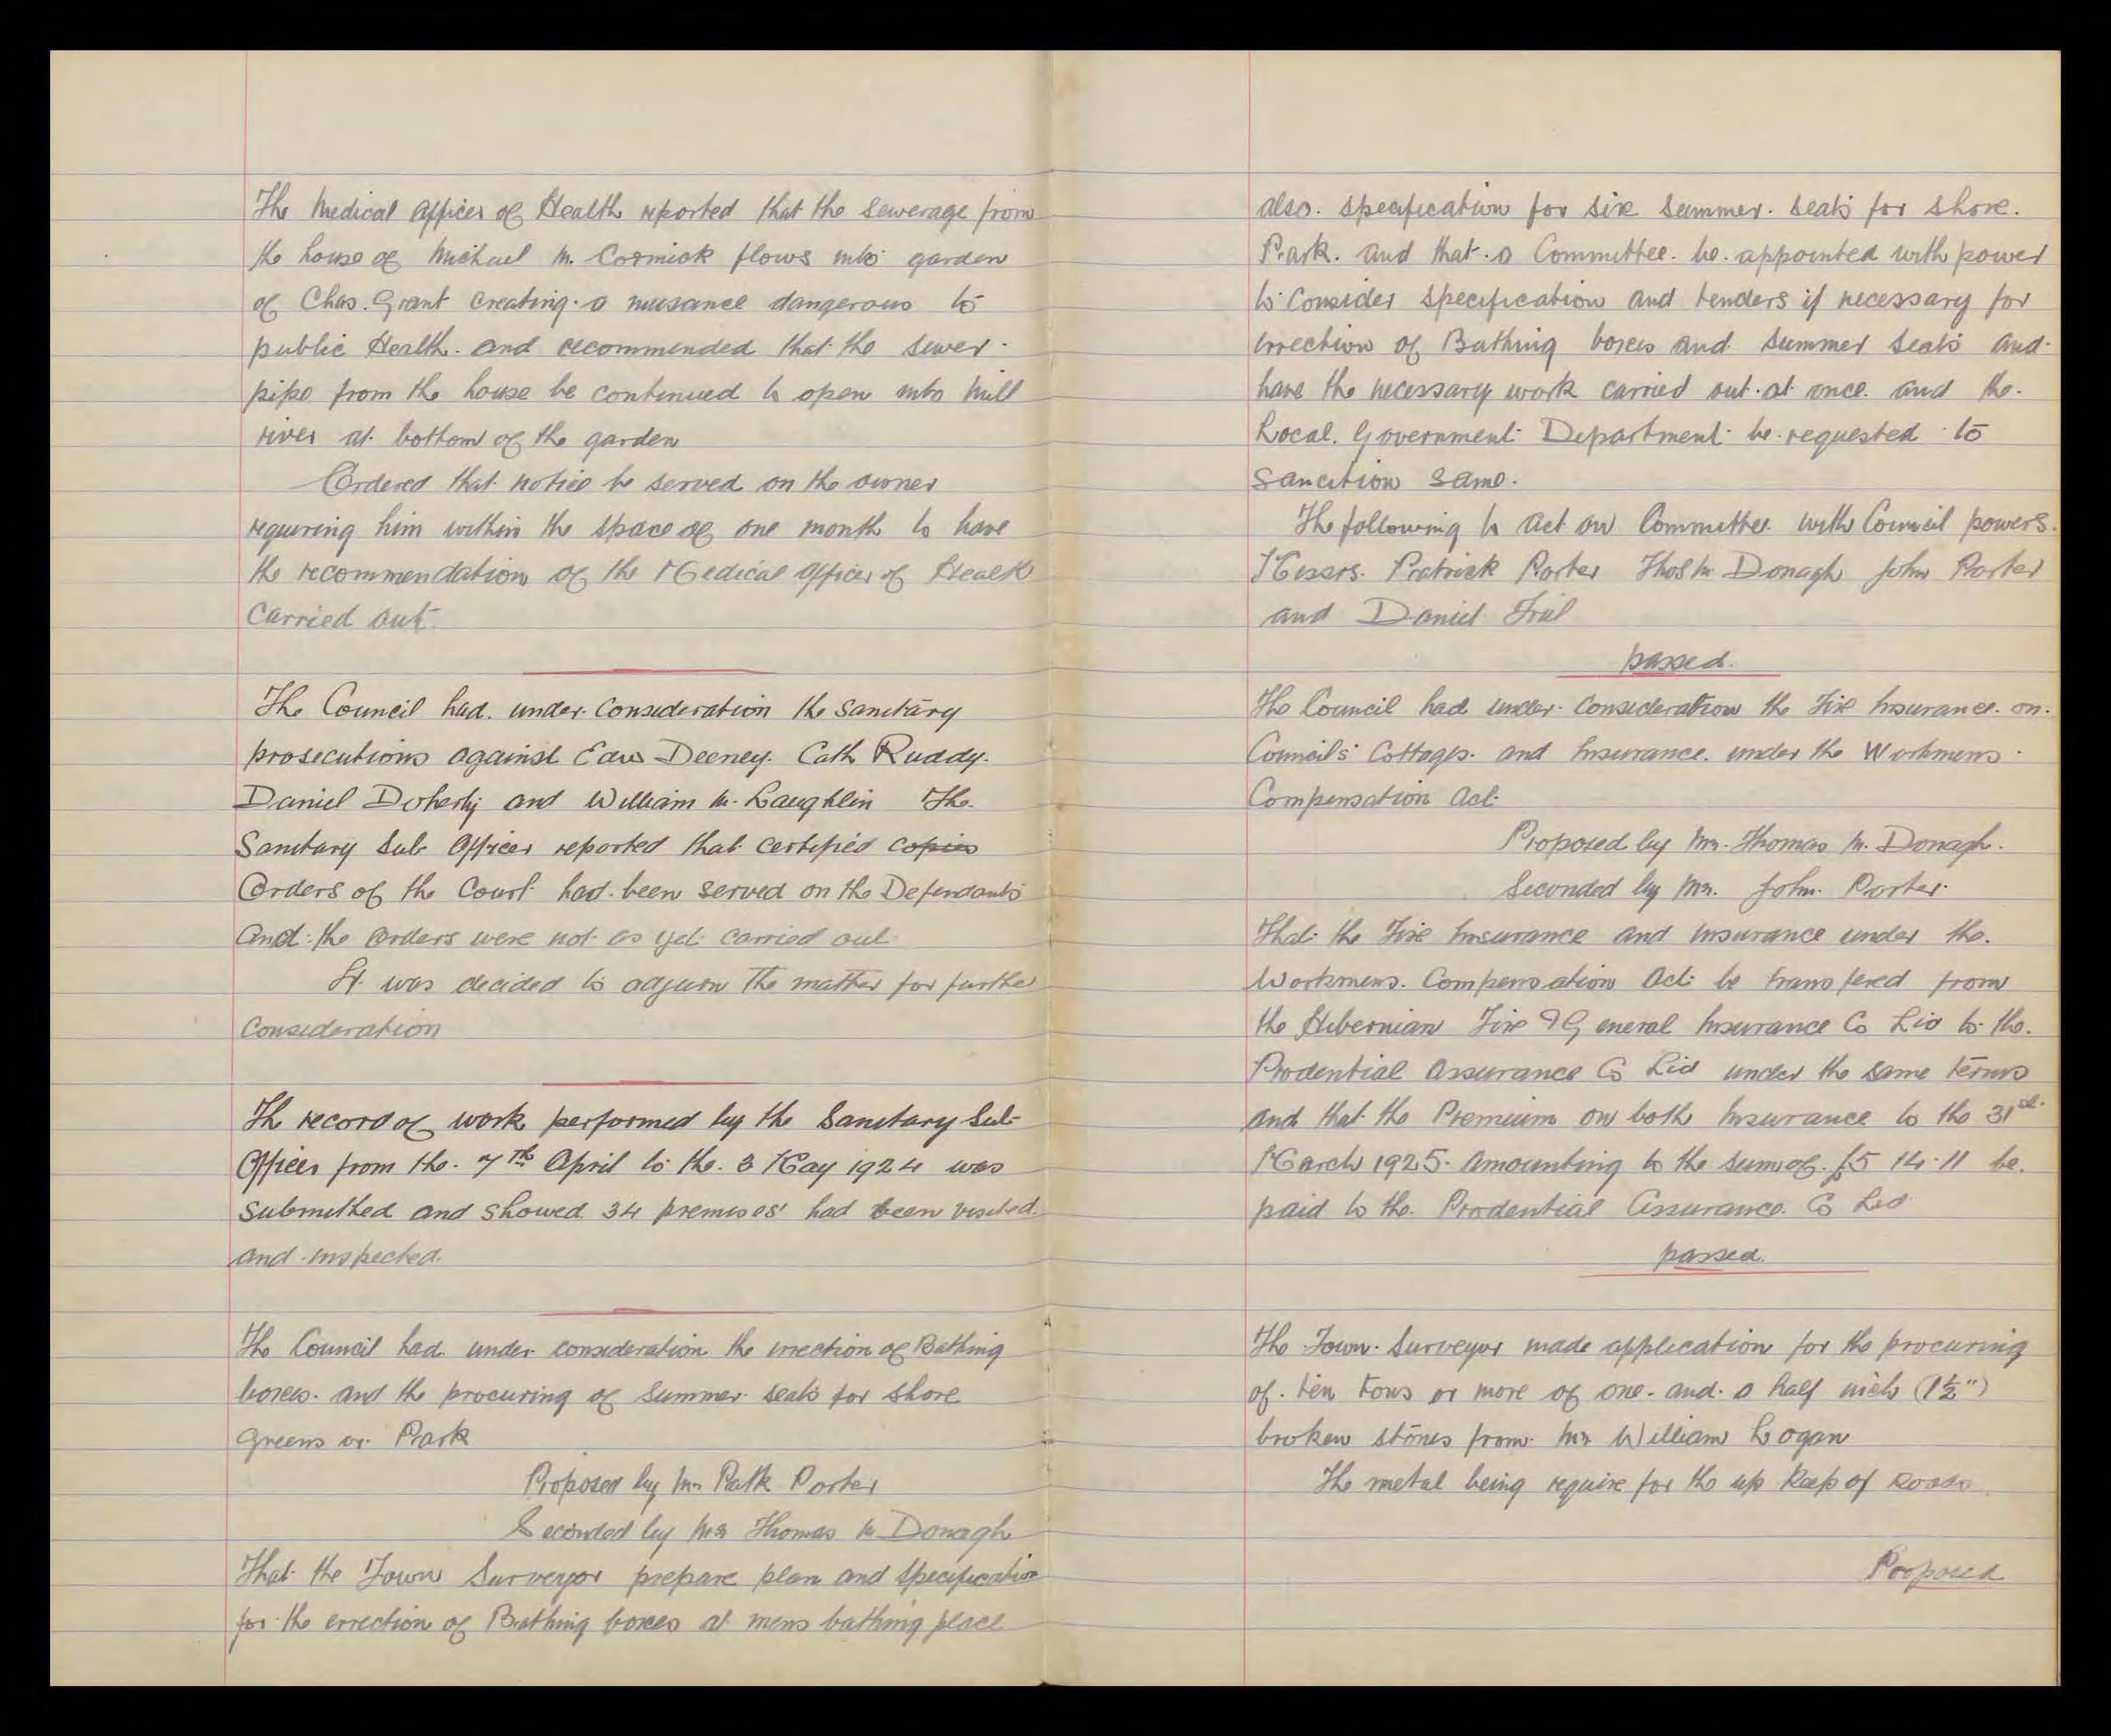 The Medical Officer of Health reported that the Sewerage from
the house of Michael Mc Cormick flows into garden
of Chas. Grant creating a nuisance dangerous to
public Health. and recommended that the sewer
pipe from the house be continued to open into Mill
river at bottom of the garden
Ordered that notice be served on the owner
requiring him within the space of one month to have
the recommendation of the Medical Officer of Health
carried out
The Council had under consideration the Sanitary
prosecutions against Edw Deeney. Cath Ruddy.
Daniel Doherty and William Mc Laughlin The
Sanitary Sub Officer reported that certified copies
Orders of the Court had been served on the Defendants
and the orders were not as yet carried out
It was decided to adjurn the matter for further
Consideration
The record of work performed by the Sanitary Sub
Officer from the 7th April to the. 3 May 1924 was
Submitted and showed 34 premises had been visited
and inspected.
The Council had under consideration the errection of Bathing
boxes. and the procuring of Summer seats for Shore
Greens or Park
Proposed by Mr Patk Porter
Seconded by Mr Thomas Mc Donagh
That the Town Surveyor prepare plan and specification
for the errection of Bathing boxes at mens bathing place
also. specification for six Summer. seats for Shore.
Park. and that a Committee. be appointed with power
to Consider specification and tenders if necessary for
errection of Bathing boxes and Summer Seats and
have the necessary work carried out at once. and the
Local. Government Department be requested to
Sanction same.
The following to act on Committee. with Council powers.
Messrs. Patrick Porter Thos Mc Donagh John Porter
and Daniel Friel
passed.
The Council had under consideration the Fire Insurance. on.
Council's Cottages. and Insurance. under the Workmens
Compensation Act.
Proposed by Mr. Thomas Mc Donagh.
Seconded by Mr. John. Porter.
That the Fire Insurance and Insurance under the.
Workmens. Compensation Act be transfered from
the Hibernian Fire & General Insurance Co Ltd to the.
Prodential Assurance Co Ltd under the same terms
and that the Premium on both Insurance to the 31st
March 1925. amounting to the sum of. £5 14.11 be.
paid to the. Prodential Assurance. Co Ltd
passed.
The Town. Surveyor made application for the procuring
of. ten tons or more of one. and. a half inch (1½")
broken stones from Mr William Logan
The metal being require for the up keep of roads
Proposed